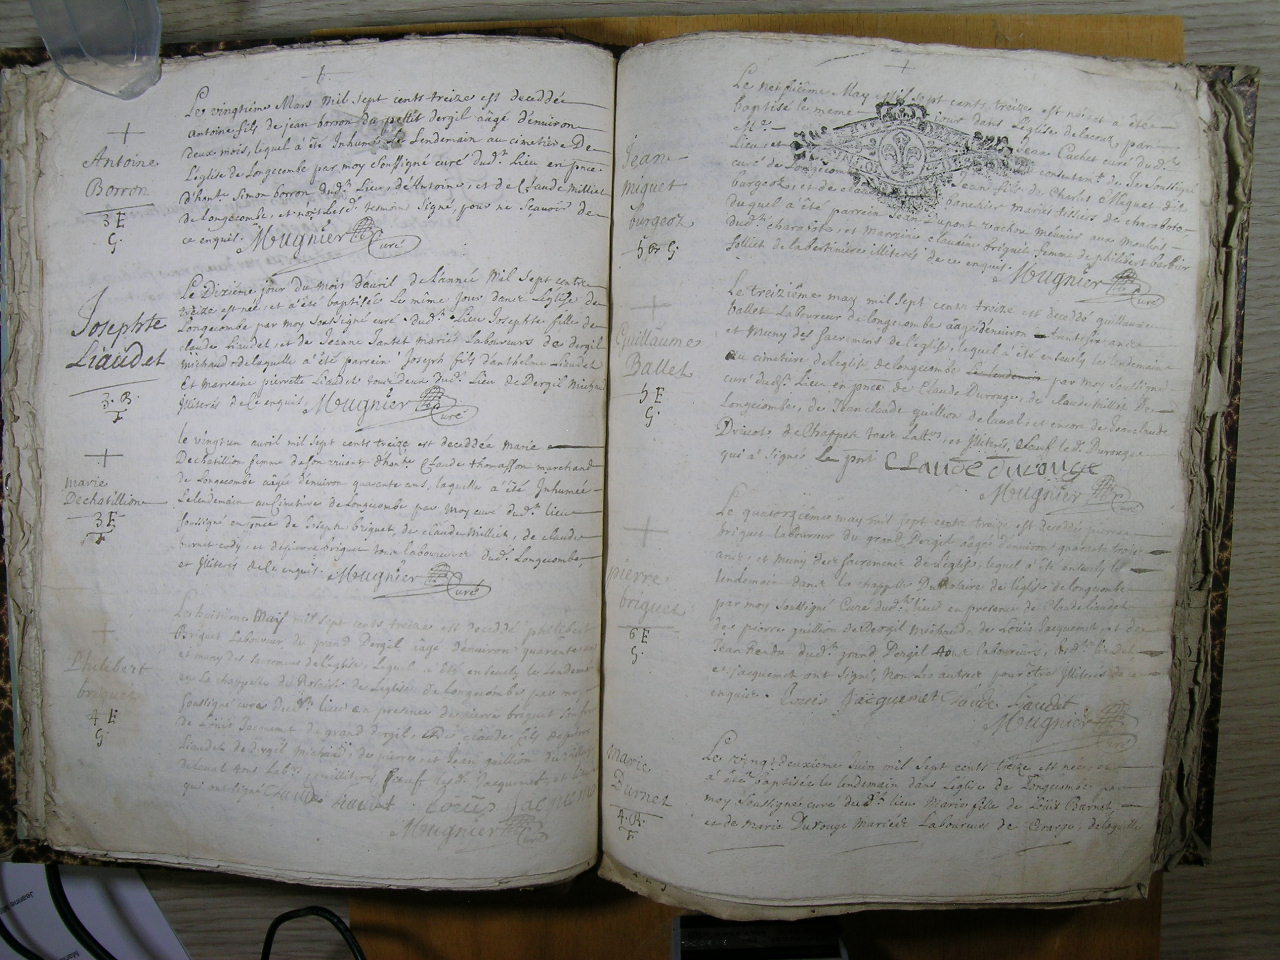 Antoine
Borron
3 E
G.
Le vingtième Mars mil sept cents treize est deceddé
Antoine fils de jean borron du petit dergil aagé d'environ
deux mois, lequel a été Inhumé Le Lendemain au cimetière De
L'eglise de Longecombe par moy soussigné curé dud. Lieu en pnce
d'hon. Simon borron dud. Lieu, de Antoine, et de Claude Milliet
de Longecombe, et n'ont Lesd. temoins signé, pour ne sçavoir de
ce enquis. Mugnier Curé
Josephte
Liaudet
3. B.
F
Le Dixième jour du mois d'avril de L'année Mil Sept cents
treize est née, et a été baptisée Le même jour dans L'église de
Longecombe par moy soussigné curé dud. Lieu Josephte fille de
claude Liaudet, et de Jeanne Jantet mariés Laboureurs de dergil
michaud de laquelle a été parrein Joseph fils d'anthelme Liaudet
Et marreine pierrette Liaudet tous deux dud. Lieu de Dergil Michaud
Illiterés de ce enquis. Mugnier Curé
marie
Dechatillion
3 E
F
le vingt un avril mil sept cents treize est deceddée marie
Dechatillion femme de son vivant d'hon. Claude thomasson marchand
de Longecombe aagée d'environ quarante ans, laquelle a été Inhumée
Le lendemain au Cimetière de Longecombe par moy curé dud. lieu
soussigné en pnce de Joseph briquet, de claude Milliet, de claude
et de pierre briquet tous laboureurs dud. Longecombe,
et Illiterés de ce enquis. Mugnier Curé
Philibert
briquet
4 E
G.
Le huitième May mil sept cents treize est deceddé philibert
Briquet Laboureur du grand Dergil aagé d'environ quarante ans
et muny des sacremens de L'eglise, Lequel a été ensevely le Lendemain
en la chappelle du Rosaire de L'eglise de Longecombe par moy
soussigné curé dud. lieu en presence de pierre briquet son frere
de Louis Jacquemet du grand dergil, de claude fils de pierre
Liaudet de dergil michaud, de pierre et Jean guillion du village
de Laval tous Lab. et illiterés sauf Lesd. Jacquemet et Liaudet
qui ont signé Claude Liaudet Louis Jacquemet
Mugnier Curé
Jean
miguet
burgeoz
5 B G.
Le neufième May mil sept cents treize est né, et a été
baptisé le meme jour dans L'eglise de lacoux par
M. Jean Cachet curé dud.
Lieu, et consentant Je soussigné
curé de Longecombe Jean fils de Charles Miguet dit
burgeoz, et de mariés de charabote
duquel a été parrein Jean Dupont vachon meûnier aux moulins
dud. charabote, et marreine claudine briquet femme de philibert barbier
Illiterés de ce enquis Mugnier Curé
Guillaume
Ballet
5 E
G.
Le treizième may mil sept cents treize est deceddé guillaume
ballet Laboureur de longecombe aagé d'environ trente six ans
et Muny des sacremens de L'eglise, lequel a été ensevely le lendemain
au cimetière de l'eglise de Longecombe par moy soussigné
curé dud. Lieu en pnce de Claude Durouge, de claude Milliet De
Longecombe, de Jean claude guillion de laval et encore de Jean claude
de Chappes tous Lab., et Illiterés, Sauf le d. Durouge
qui a signé Le port Claude durouge
Mugnier Curé
pierre
briquet
6 E
G.
Le quatorzième may mil sept cents treize est deceddé pierre
briquet laboureur du grand Dergil aagé d'environ quarante trois
ans, et muny des sacremens de L'eglise, lequel a été ensevely le
lendemain dans la chappelle du Rosaire de L'eglise de longecombe
par moy soussigné Curé dud. lieu en presence de Claude Liaudet
de pierre guillion de Dergil michaud de Louis Jacquemet, et de
Jean dud. grand Dergil tous laboureurs, led. Liaudet
et jacquemet ont signé, non les autres pour être Illiterés de ce
enquis. Louis Jacquemet Claude Liaudet
Mugnier Curé
Marie
Burnet
4. B.
F
Le vingt deuxième Juin mil sept cents treize est née, et
a été baptisée le lendemain dans L'eglise de Longecombe par
moy soussigné curé dud. lieu Marie fille de Louis Burnet
et de Marie Durouge Mariés Laboureurs de de laquelle